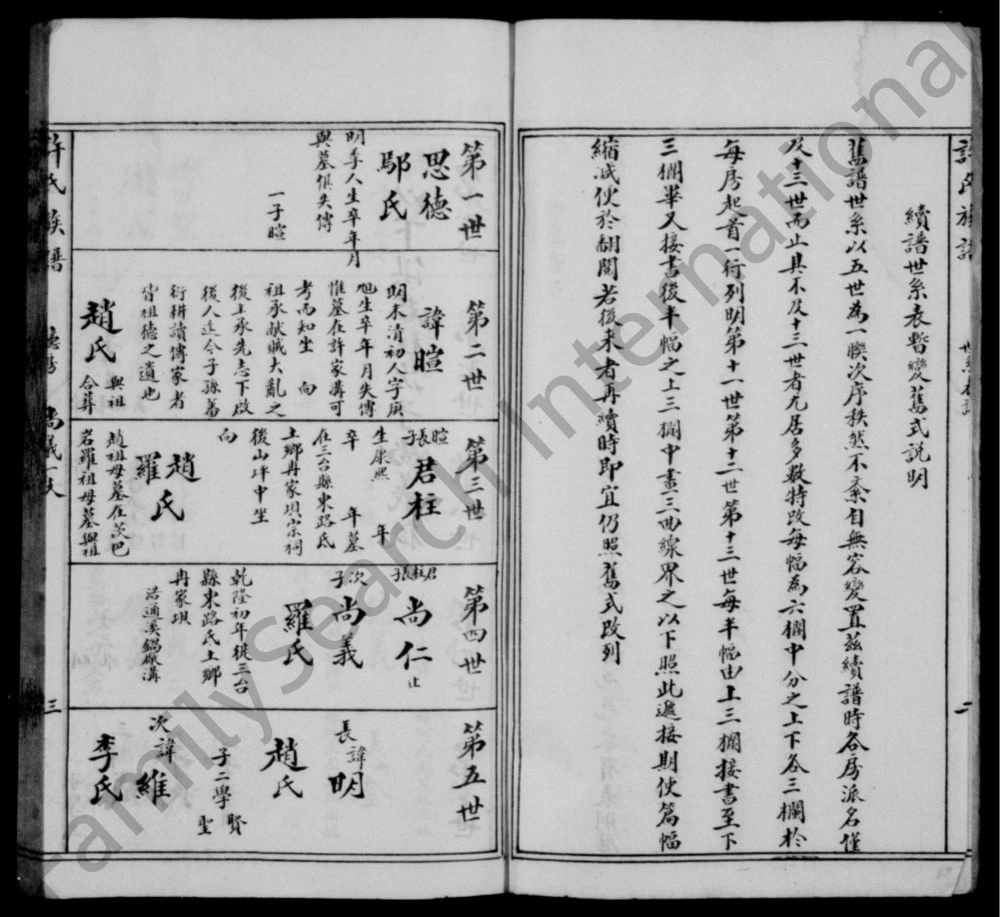 續譜世系表暫變舊式説明
舊譜世系以五世為一䁬次序秩然不紊自無容變置茲續譜時各房派名僅
及十三世而止具不及十三世者尤居多數特改每幅為六欄中分之上下各三欄於
每房起首一行列明第十一世第十二世第十三世每半幅由上三欄接書至下
三欄畢又接書後半幅之上三欄中畫三曲線界之以下照此遞接期使篇幅
縮減便於翻閱若後來者再續時即宜仍照舊式改列
二
第一世
思德
鄢氏
明季人生卒年月
與墓俱失傳
一子暄
第二世
諱暄
明末清初人字庚
旭生卒年月失傳
惟墓在許家溝可
考而知坐 向
祖承献賊大亂之
後上承先志下啟
後人迄今子孫蕃
衍耕讀傳家者
皆祖德之遺也
趙氏
與祖
合葬
第三世
暄長子
君柱
生康熙 年
卒 年墓
在三台縣東路氐
土鄉冉家垻宗祠
後山坪中坐
向
趙氏
羅氏
趙祖母墓在茨巴
岩羅祖母墓與祖
第四世
君柱長
尚仁
止
次子
尚義
羅氏
乾隆初年徙三台
縣東路氐土鄉
冉家垻
第五世
長諱明
趙氏
子二學
賢
聖
次諱維
李氏
許氏族譜
三
FamilySearch International